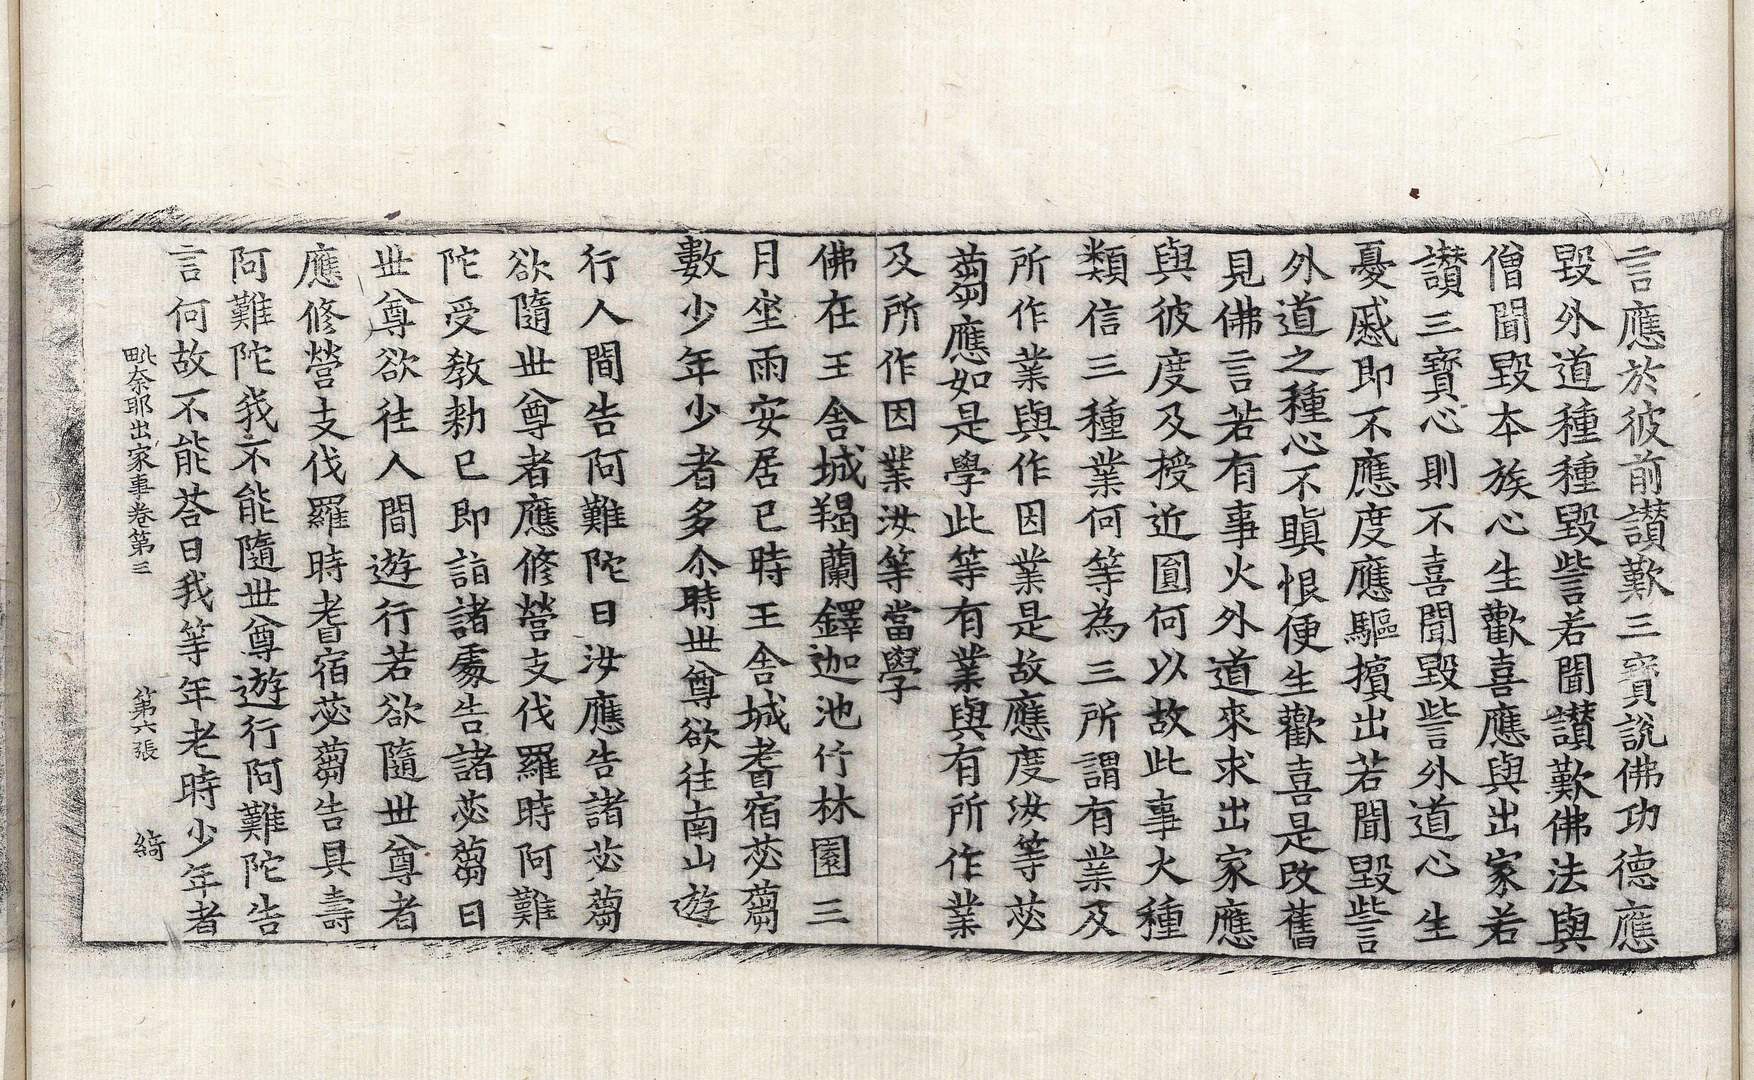 言應於彼前讃歎三寳說佛功德應
毀外道種種毀訾若聞讃歎佛法與
僧聞毀本族心生歡喜應與出家若
讃三寳心則不喜聞毀訾外道心生
憂慼即不應度應驅擯出若聞毀訾
外道之種心不瞋恨便生歡喜是改舊
見佛言若有事火外道來求出家應
與彼度及授近圎何以故此事火種
類信三種業何等為三所謂有業及
所作業與作因業是故應度汝等苾
蒭應如是學此等有業與有所作業
及所作因業汝等當學
佛在王舎城羯蘭鐸迦池竹林園三
月坐雨安居已時王舎城耆宿苾蒭
數少年少者多尒時丗尊欲往南山遊
行人間告阿難陀曰汝應告諸苾蒭
欲隨丗尊者應修營支伐羅時阿難
陀受教勑已即詣諸處告諸苾蒭曰
丗尊欲往人間遊行若欲隨丗尊者
應修營支伐羅時耆宿苾蒭告具壽
阿難陀我不能隨丗尊遊行阿難陀告
言何故不能荅曰我等年老時少年者
毗奈耶出家事卷第三　第六張　綺